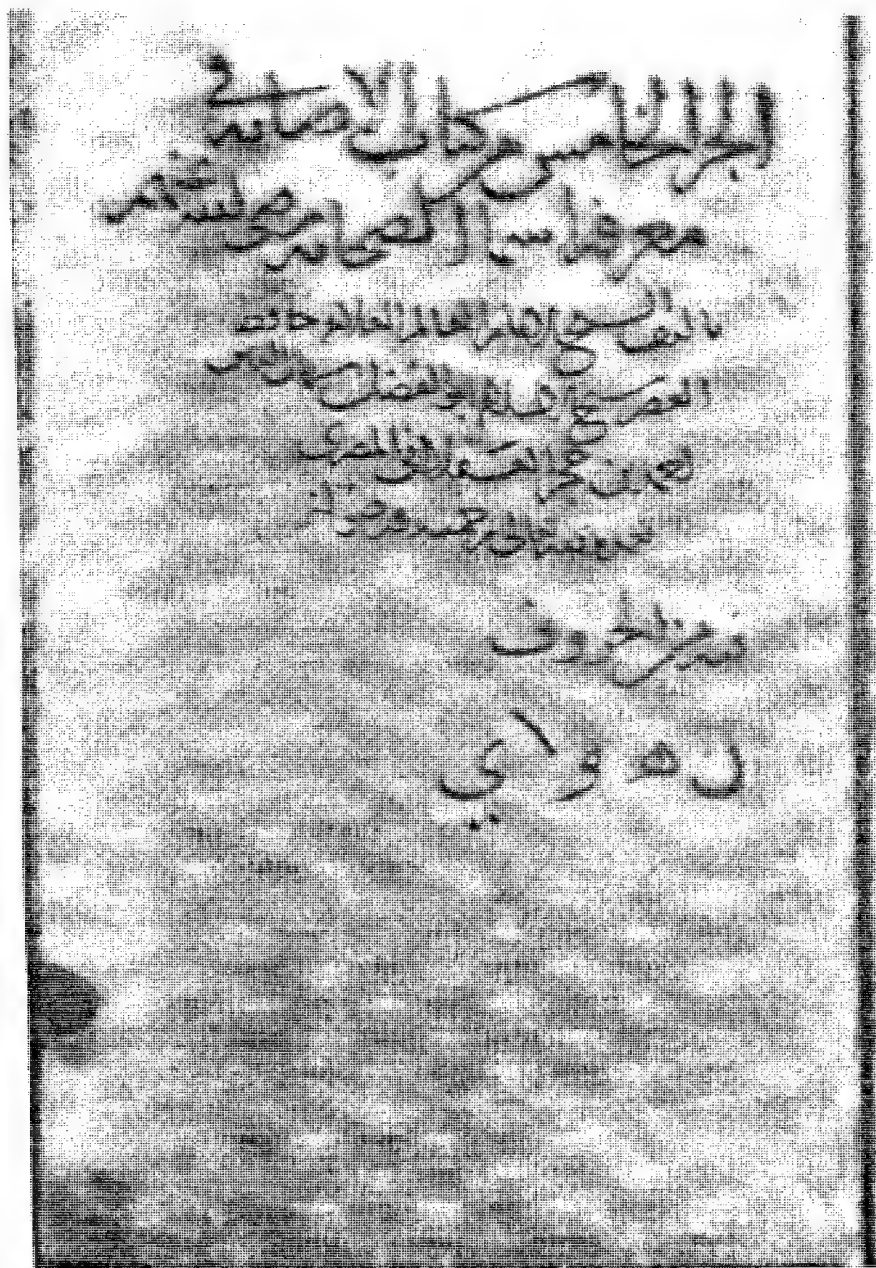 الجزء الخامس من كتاب الاصابة في
معرفة اسما الصحابة رضي الله عنهم
تاليف الشيخ الامام العالم العلامة حافظ
العصر شيخ الاسلام ابي الفضل شهاب الدين
احمد بن حجر العسقلاني المصري
الله تعالى برحمته ورضوانه
فيه من الحروف
ن ه و ا ي